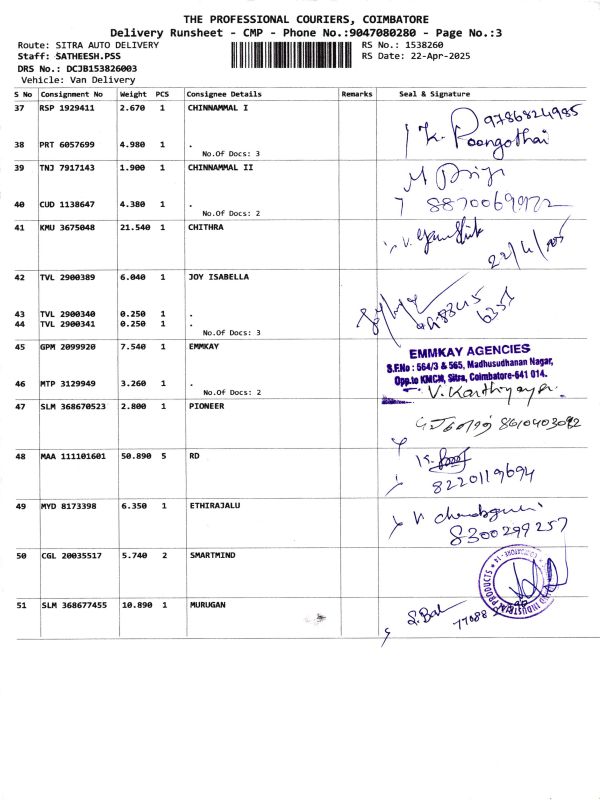 THE PROFESSIONAL COURIERS, COIMBATORE
Delivery Runsheet - CMP - Phone No.:9047080280 - Page No.:3
Route: SITRA AUTO DELIVERY RS No.: 1538260
Staff: SATHEESH.PSS RS Date: 22-Apr-2025
DRS No.: DCJB153826003
Vehicle: Van Delivery
S No Consignment No Weight PCS Consignee Details Remarks Seal & Signature
37 RSP 1929411 2.670 1 CHINNAMMAL I
9786824985
K. Poongothai
38 PRT 6057699 4.980 1 .
No.Of Docs: 3
39 TNJ 7917143 1.900 1 CHINNAMMAL II
40 CUD 1138647 4.380 1 .
No.Of Docs: 2
41 KMU 3675048 21.540 1 CHITHRA
22/4/2025
42 TVL 2900389 6.040 1 JOY ISABELLA
43 TVL 2900340 0.250 1 .
44 TVL 2900341 0.250 1 .
No.Of Docs: 3
45 GPM 2099920 7.540 1 EMMKAY
EMMKAY AGENCIES
S.F.No : 564/3 & 565, Madhusudhanan Nagar,
Opp.to KMCH, Sitra, Coimbatore-641 014.
46 MTP 3129949 3.260 1 .
No.Of Docs: 2
V. Karthiyayer.
47 SLM 368670523 2.800 1 PIONEER
8610403092
48 MAA 111101601 50.890 5 RD
8220119694
49 MYD 8173398 6.350 1 ETHIRAJALU
8300299257
50 CGL 20035517 5.740 2 SMARTMIND
INDUSTRIAL PRODUCTS
51 SLM 368677455 10.890 1 MURUGAN